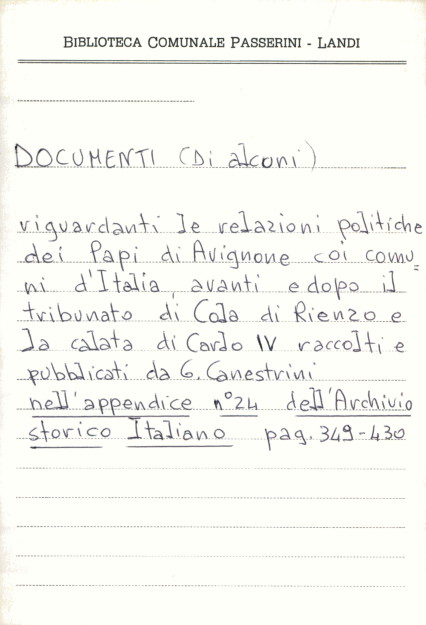 BIBLIOTECA COMUNALE PASSERINI - LANDI
DOCUMENTI (Di alcuni)
riguardanti le relazioni politiche
dei Papi di Avignone coi comu=
ni d'Italia, avanti e dopo il
tribunato di Cola di Rienzo e
la calata di Carlo IV raccolti e
pubblicati da G. Canestrini
nell'appendice n°24 dell'Archivio
storico Italiano pag. 349-430